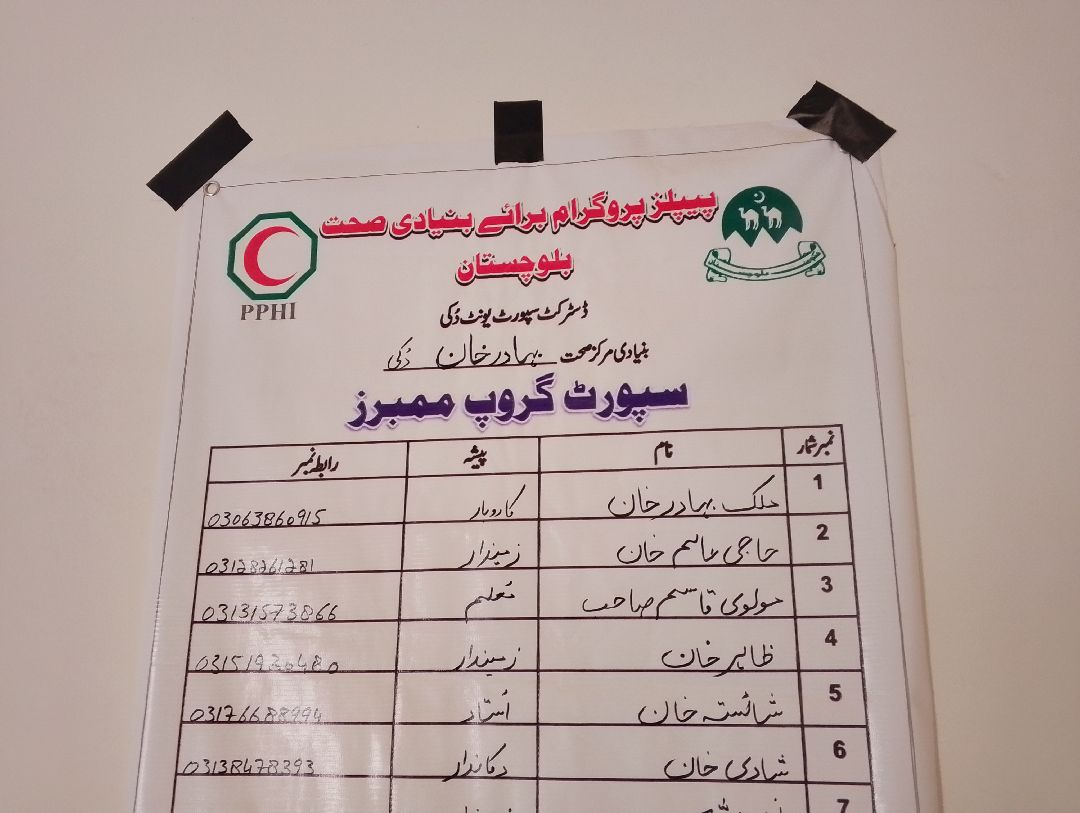 پیپلز پروگرام برائے بنیادی صحت
بلوچستان
PPHI
ڈسٹرکٹ سپورٹ یونٹ دُکی
بنیادی مرکز صحت بہادر خان دُکی
سپورٹ گروپ ممبرز
نمبر شمار نام پیشہ رابطہ نمبر
1 ملک بہادر خان کاروبار 03063860915
2 حاجی عاصم خان زمیندار 03128261281
3 مولوی قاسم صاحب معلم 03131573866
4 ظاہر خان زمیندار 03151926480
5 شائستہ خان اُستاد 03176688994
6 شادی خان دکاندار 03138478393
7